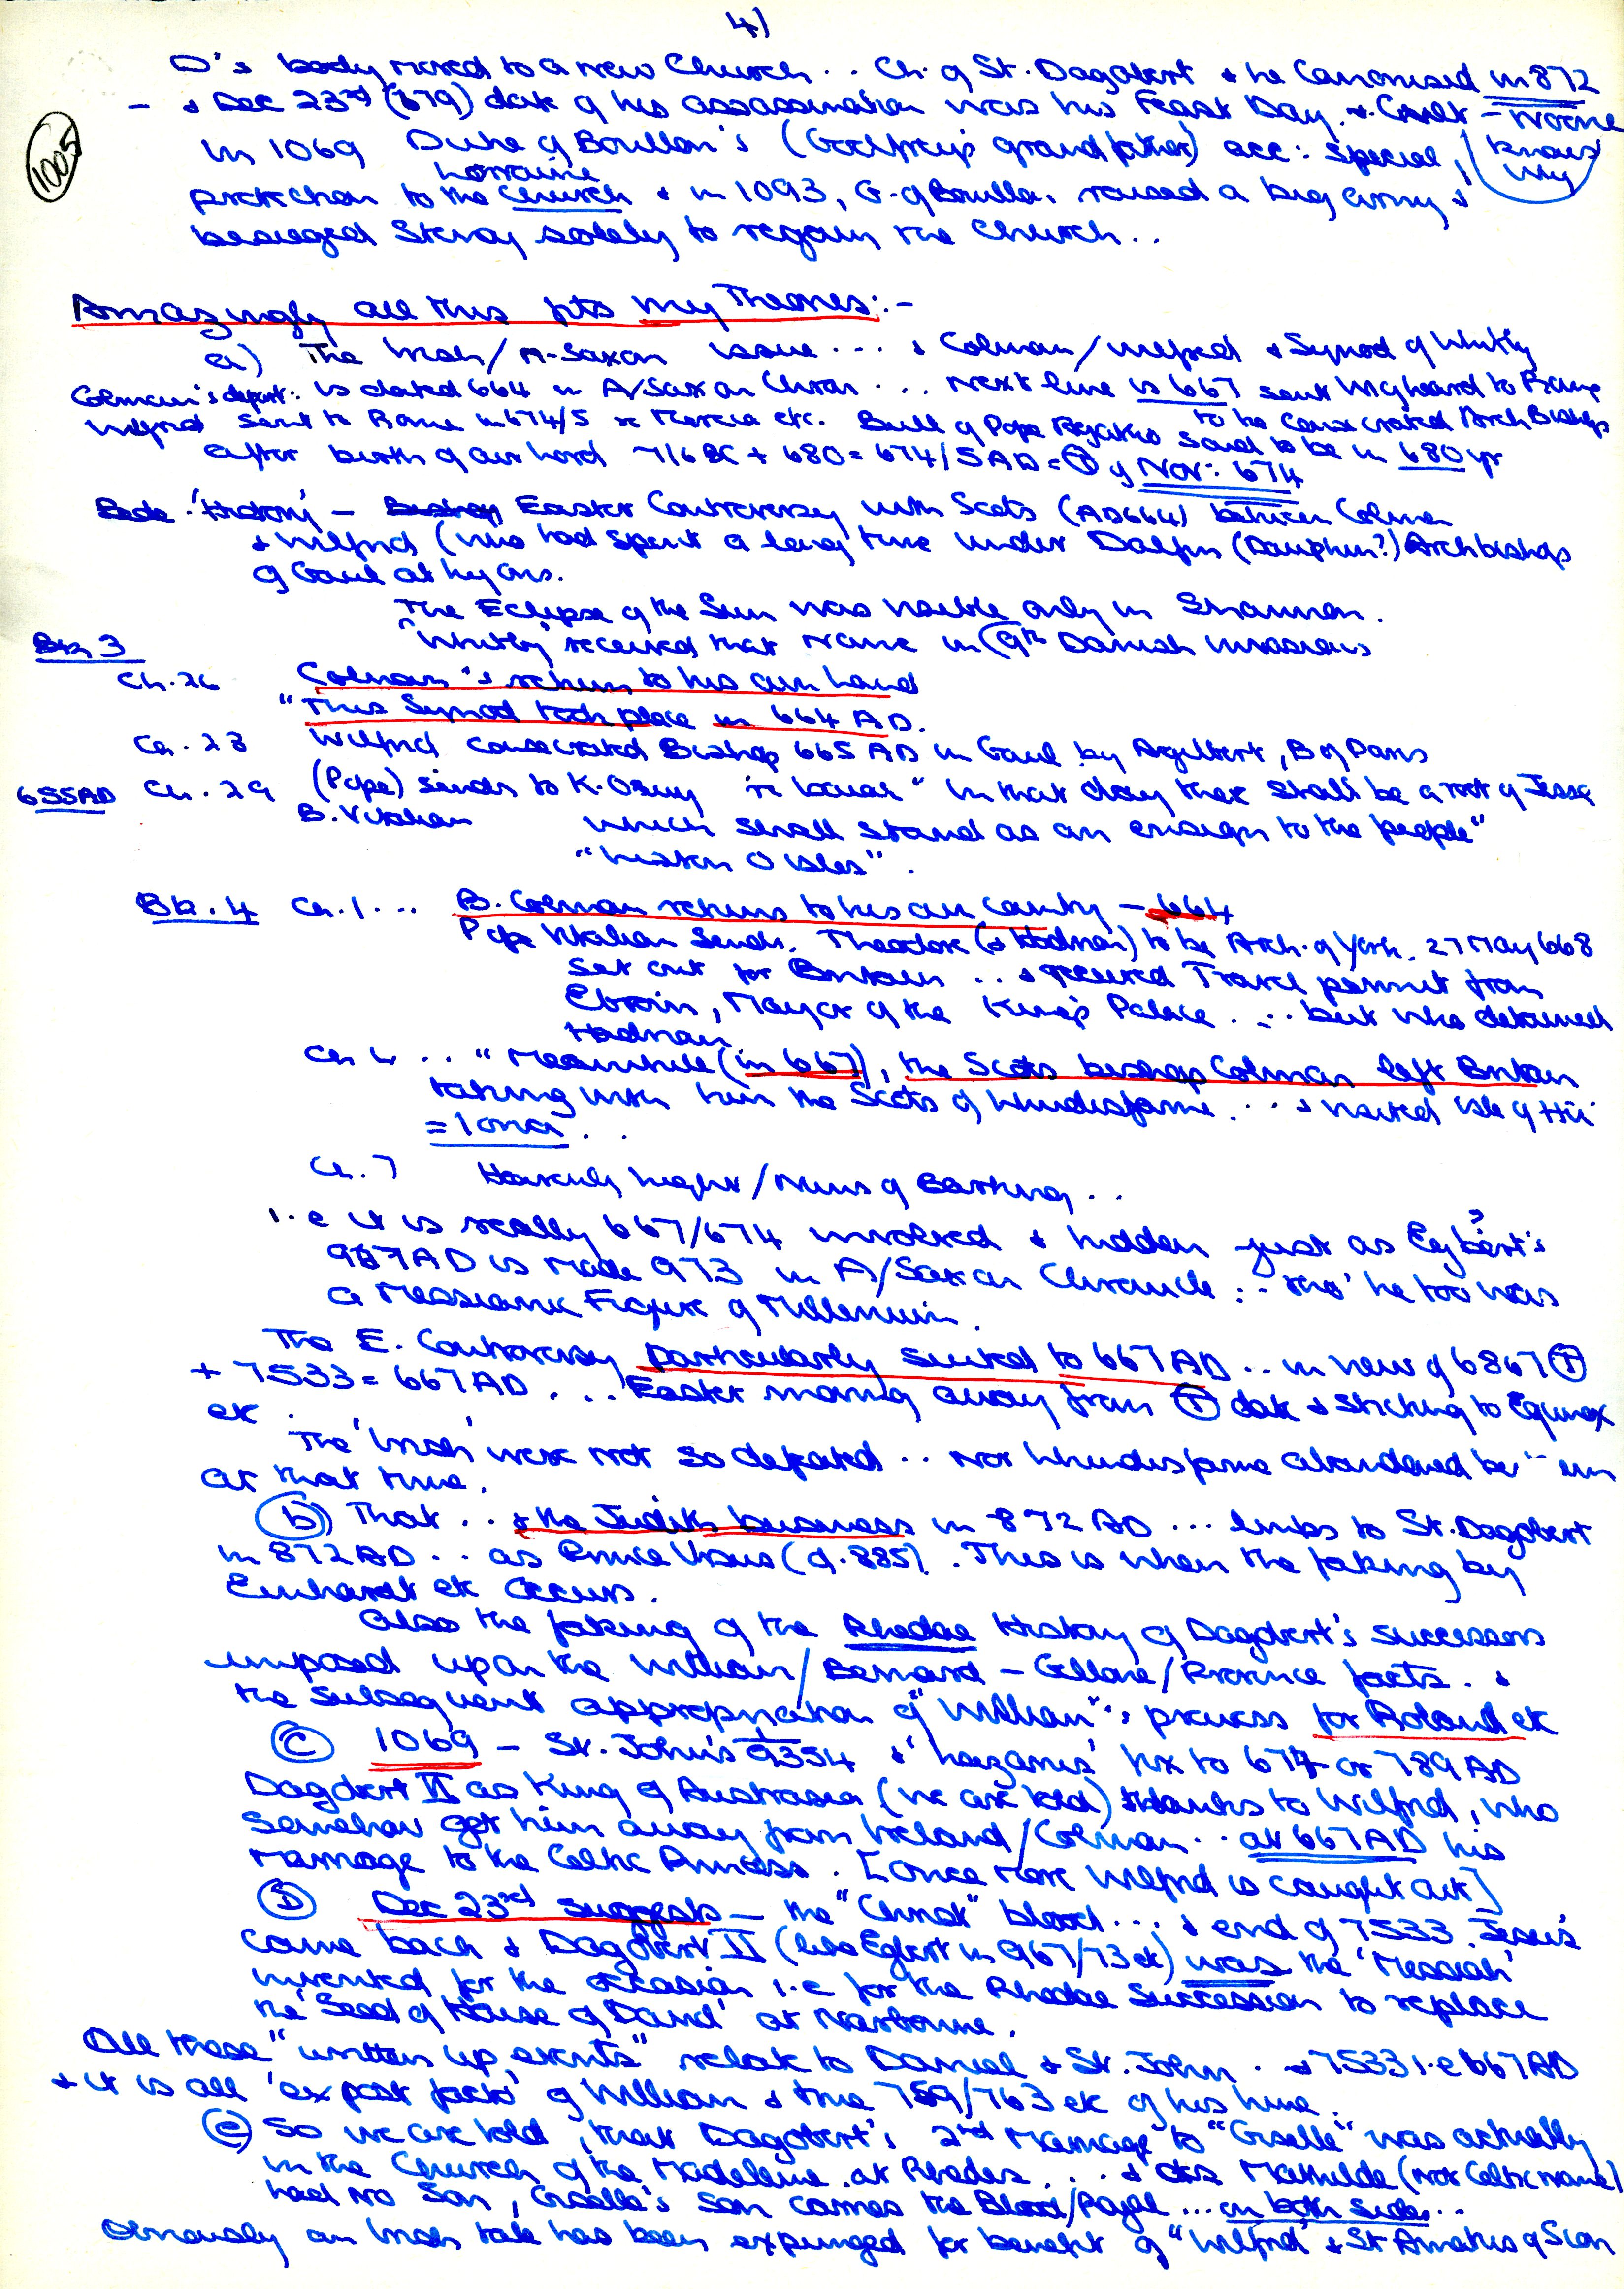 4)
D's body moved to a new Church .. Ch. of St. Dagobert & he Canonised in 872
- & Dec 23rd (679) date of his assassination was his Feast Day. & Cult - Noone knows why
1005
In 1069 Duke of Bouillon's (Godfrey's grandfather) acc: special
Lorraine
protection to the Church & in 1093, G. of Bouillon raised a big army &
besieged Stenay solely to regain the Church ..
Amazingly all this fits my Theories:-
a) The Irish/A-Saxon issue .... & Colman/Wilfrid & Synod of Whitby
Colman's depart: is dated 664 in A/Saxon Chron ... Next line is 667 sent Wigheard to Rome
to be Consecrated Arch Bishop
Wilfrid sent to Rome in 674/5 re Mercia etc. Bull of Pope Agatho said to be in 680 yr
after birth of our Lord 7/6BC + 680 = 674/5 AD = of Nov: 674
Bede 'History' - Easter Controversy with Scots (AD664) between Colman
& Wilfrid (who had spent a long time under Dalfin (Dauphin?) Archbishop
of Gaul at Lyons.
The Eclipse of the Sun was visible only in Shannon.
'Whitby' received that name in 9th Danish invasions
Bk 3
Ch. 26 Colman's return to his own land
"This Synod took place in 664 AD.
Ch. 28 Wilfrid consecrated Bishop 665 AD in Gaul by Agilbert, B of Paris
655AD Ch. 29 (Pope) sends to K. Oswy re Isaiah "In that day there shall be a root of Jesse
B. Vitalian which shall stand as an ensign to the people"
"Listen O Isles".
Bk. 4 Ch. 1 ... B. Colman returns to his own country - 664
Pope Vitalian sends Theodore (& Hadrian) to be Arch. of York. 27 May 668
set out for Britain .. & received Travel permit from
Ebroin, Mayor of the King's Palace ... but who detained
Hadrian.
Ch 4 .. "Meanwhile (in 667), the Scots bishop Colman left Britain
taking with him the Scots of Lindisfarne .... & visited Isle of Hii
= Iona ..
Ch. 7 Heavenly light/Nuns of Barking ..
i.e it is really 667/674 involved & hidden just as Egbert's ?
967AD is made 973 in A/Saxon Chronicle :- tho' he too was
a Messianic Figure of Millennium.
The E. Controversy particularly suited to 667 AD .. in view of 6867
+ 7533 = 667 AD .... Easter moving away from date & sticking to Equinox
etc.
The 'Irish' were not so defeated .. Nor Lindisfarne abandoned by 'em
at that time.
b) That .. & the Judith business in 872 AD ... links to St. Dagobert
in 872 AD .. as Prince Ursus (d. 885). This is when the faking by
Einhardt etc occurs.
Also the faking of the Rhedae History of Dagobert's successors
imposed upon the William/Bernard - Gellone/Provence facts. &
the subsequent appropriation of "William"'s prowess for Roland etc
C 1069 - St. John's 9354 & 'Lazarus' fix to 674 or 789 AD
Dagobert II as King of Austrasia (we are told) thanks to Wilfrid, who
somehow got him away from Ireland/Colman .. at 667 AD his
marriage to the Celtic Princess. [Once more Wilfrid is caught out]
D Dec 23rd suggests - the "Christ" blood ... & end of 7533. Jesus
come back & Dagobert II (like Egbert in 967/73 etc) was the 'Messiah'
invented for the occasion i.e for the Rhedae Succession to replace
the 'Seed of House of David' at Narbonne.
All these "written up events" relate to Daniel & St. John .. & 7533 i.e 667AD
& it is all 'ex post facto' of William & true 759/763 etc of his time.
e So we are told, that Dagobert's 2nd Marriage to "Giselle" was actually
in the Church of the Madeleine at Rhedae ... & as Mathilde (not Celtic name)
had no son, Giselle's son carries the Blood/Royal ... on both sides ...
Obviously an Irish tale has been expunged for benefit of "Wilfrid" & St Amatus of Sion